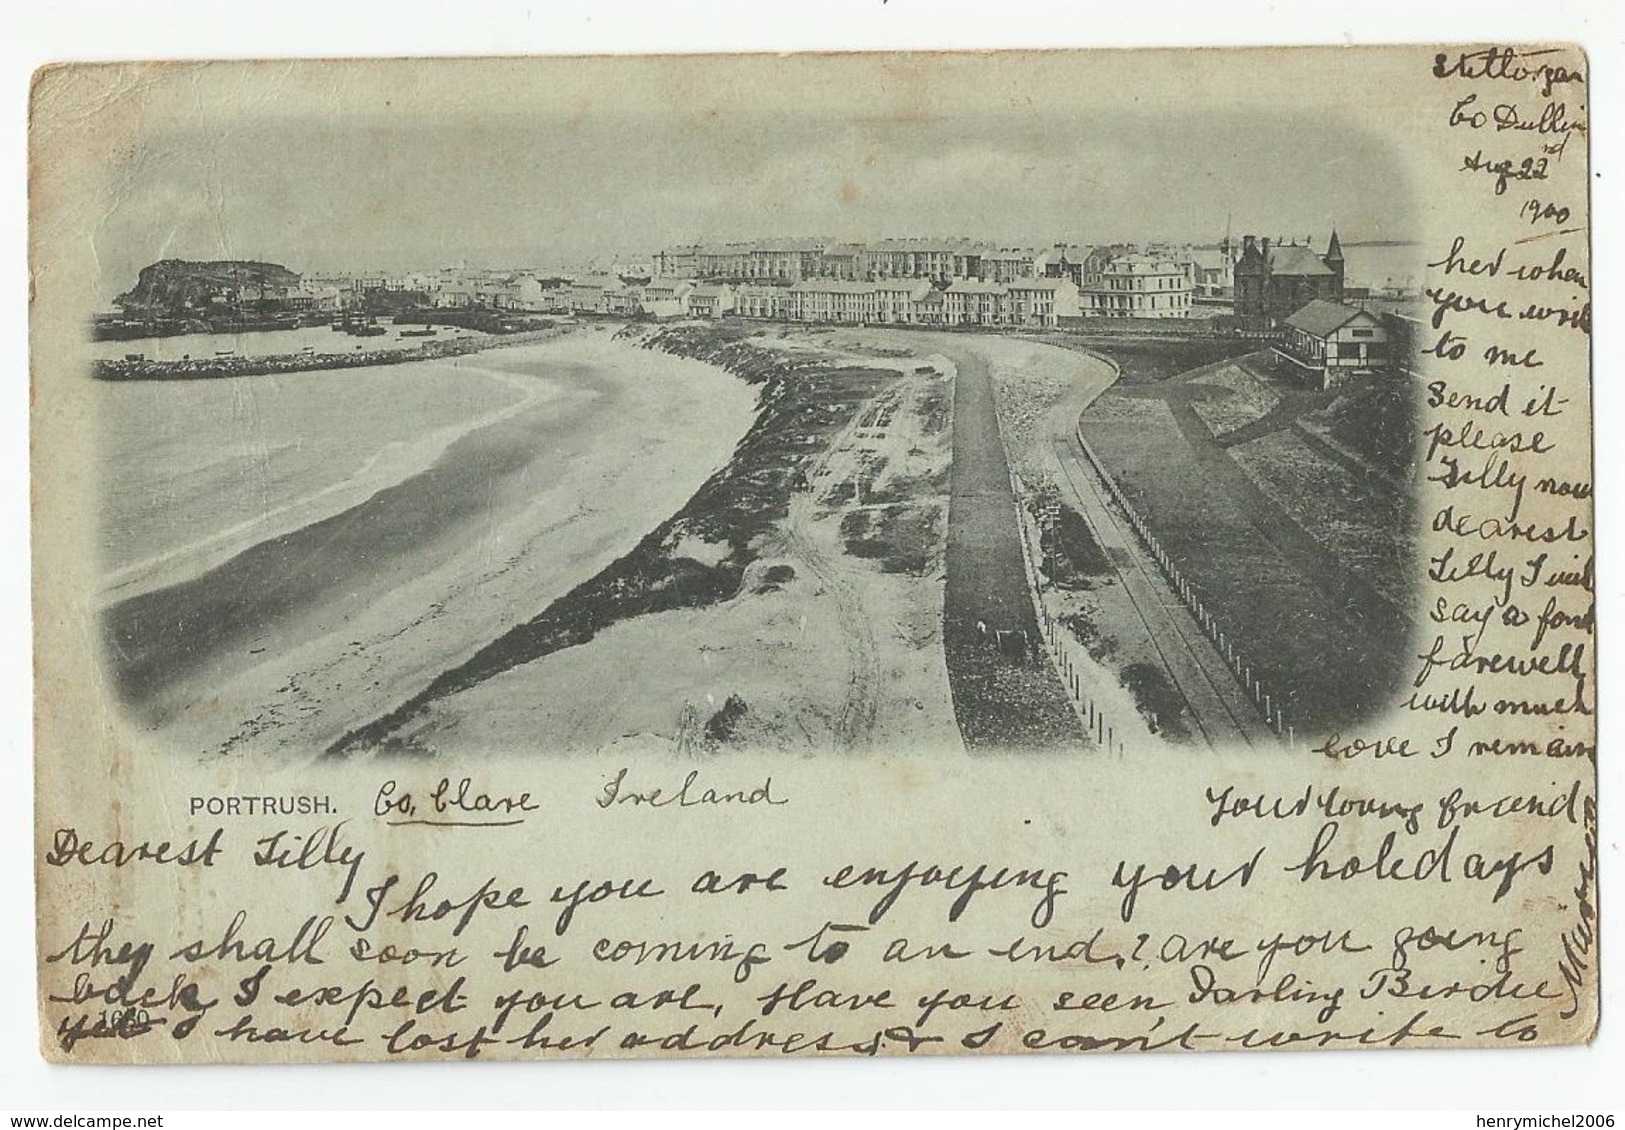 Stillorgan
Co Dublin
Aug 22nd
1900
PORTRUSH. Co, Clare Ireland
Dearest Lilly
I hope you are enjoying your holedays
they shall soon be coming to an end,? are you going
back I expect you are, Have you seen Darling Birdie
yet I have lost her address & I can't write to
her when
you write
to me
send it
please
Lilly now
dearest
Lilly I will
say a fond
farewell
with much
love I remain
Your loving friend
1660
delcampe.net
henrymichel2006